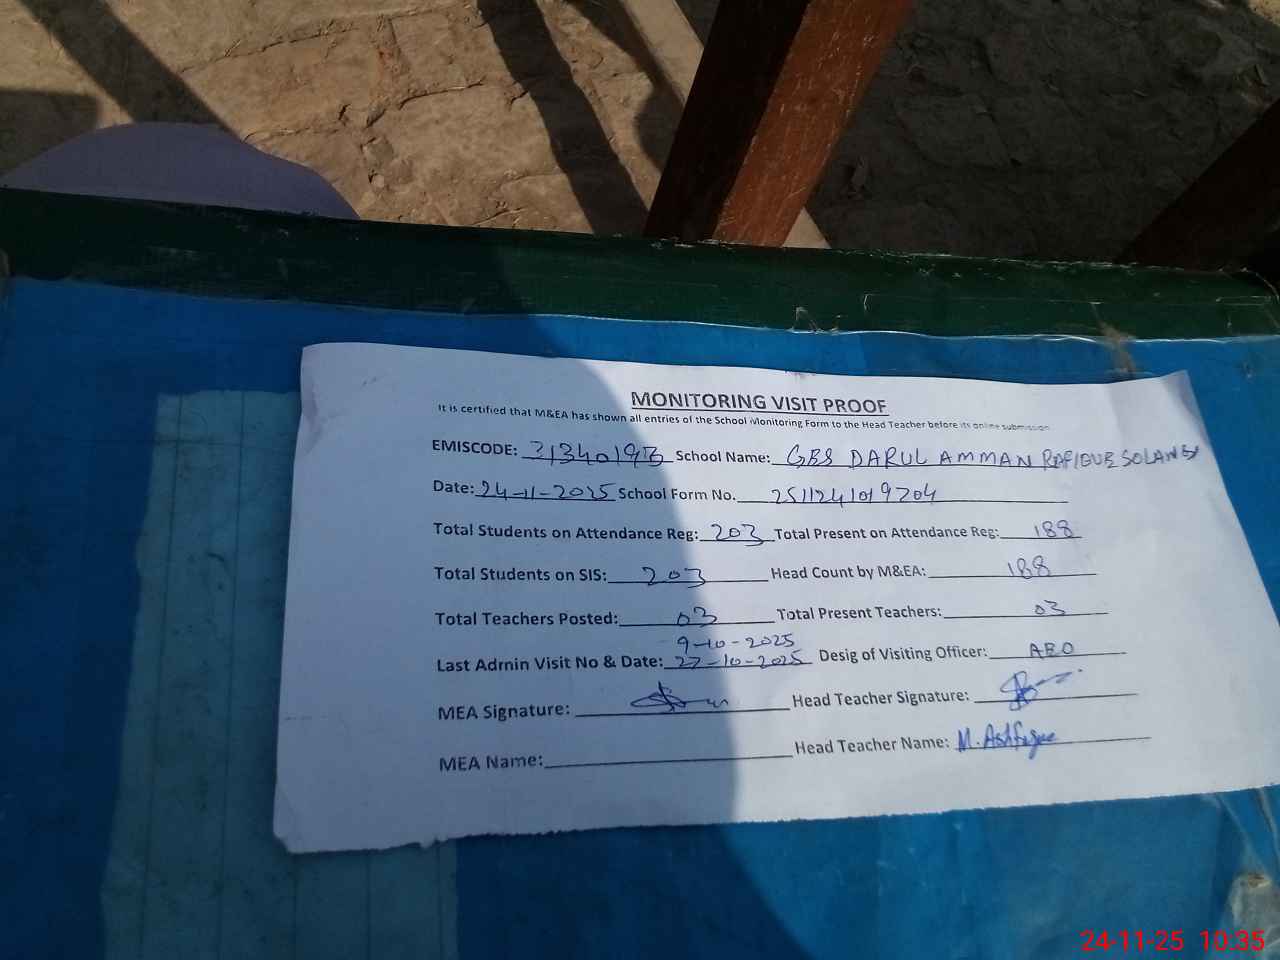 MONITORING VISIT PROOF
It is certified that M&EA has shown all entries of the School Monitoring Form to the Head Teacher before its online submission
EMISCODE: 31340193 School Name: GES DARUL AMMAN RAFIQUE SOLANGI
Date: 24-11-2025 School Form No. 2511241019204
Total Students on Attendance Reg: 203 Total Present on Attendance Reg: 188
Total Students on SIS: 203 Head Count by M&EA: 188
Total Teachers Posted: 03 Total Present Teachers: 03
9-10-2025
Last Admin Visit No & Date: 27-10-2025 Desig of Visiting Officer: AEO
MEA Signature: Head Teacher Signature:
MEA Name: Head Teacher Name: M. Ashfaque
24-11-25 10:35